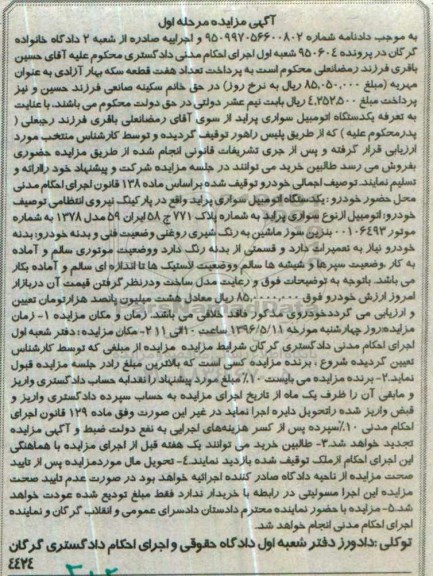 آگهی مزایده مرحله اول
به موجب دادنامه شماره ۹۵۰۹۹۷۰۵۶۶۰۰۸۰۲ و اجراییه صادره از شعبه ۲ دادگاه خانواده
گرگان در پرونده ۹۵۰۶۰۴ شعبه اول اجرای احکام مدنی دادگستری محکوم علیه آقای حسین
باقری فرزند رمضانعلی محکوم است به پرداخت تعداد هفت قطعه سکه بهار آزادی به عنوان
مهریه (مبلغ ۸۵,۰۵۰,۰۰۰ ریال به نرخ روز) در حق خانم سکینه صانعی فرزند حسین و نیز
پرداخت مبلغ ۴,۲۵۲,۵۰۰ ریال بابت نیم عشر دولتی در حق دولت محکوم می باشند، با عنایت
به تعرفه یکدستگاه اتومبیل سواری پراید از سوی آقای رمضانعلی باقری فرزند رجبعلی (
پدر محکوم علیه ) که از طریق پلیس راهور توقیف گردیده و توسط کارشناس منتخب مورد
ارزیابی قرار گرفته و پس از جری تشریفات قانونی انجام شده از طریق مزایده حضوری
بفروش می رسد طالبین خرید می توانند در جلسه مزایده شرکت و پیشنهاد خود را ارائه و
تسلیم نمایند. توصیف اجمالی خودرو توقیف شده بر اساس ماده ۱۳۸ قانون اجرای احکام مدنی
محل حضور خودرو : یکدستگاه اتومبیل سواری پراید واقع در پارکینگ نیروی انتظامی توصیف
خودرو: اتومبیل از نوع سواری پراید به شماره پلاک ۷۷۱ ج ۵۸ ایران ۵۹ مدل ۱۳۷۸ به شماره
موتور ۰۰۱۰۶۴۹۳ بنزین سوز ماشین به رنگ شیری روغنی وضعیت فنی و بدنه خودرو: بدنه
خودرو نیاز به تعمیرات دارد و قسمتی از بدنه رنگ دارد ووضعیت موتوری سالم و آماده
به کار .وضعیت سپرها و شیشه ها سالم ووضعیت لاستیک ها تا اندازه ای سالم و آماده بکار
می باشد. باتوجه به توضیحات فوق و رعایت مدل ساخت ودر نظر گرفتن قیمت آن در بازار
امروز ارزش خودرو فوق ۸۵,۰۰۰,۰۰۰ ریال معادل هشت میلیون پانصد هزار تومان تعیین
و ارزیابی می گردد خودروی مذکور فاقد خلافی می باشد. زمان و مکان مزایده ۱- زمان
مزایده:روز چهارشنبه مورخه ۱۳۹۶/۵/۱۱ ساعت ۱۰ الی ۱۱ ۲- مکان مزایده : دفتر شعبه اول
اجرای احکام مدنی دادگستری گرگان شرایط مزایده مزایده از مبلغی که توسط کارشناس
تعیین گردیده شروع ، برنده مزایده کسی است که بالاترین مبلغ را در جلسه مزایده قبول
نماید.۲- برنده مزایده می بایست ۱۰٪ مبلغ مورد پیشنهاد را نقدا به حساب دادگستری واریز
و مابقی آن را ظرف یک ماه از تاریخ اجرای مزایده به حساب سپرده دادگستری واریز و
قبض واریز شده را تحویل دایره اجرا نماید در غیر این صورت وفق ماده ۱۲۹ قانون اجرای
احکام مدنی ۱۰٪ سپرده پس از کسر هزینه های اجرایی به نفع دولت ضبط و آگهی مزایده
تجدید خواهد شد.۳- طالبین خرید می توانند یک هفته قبل از اجرای مزایده با هماهنگی
این اجرای احکام از ملک توقیف شده بازدید نمایند.۴- تحویل مال مورد مزایده پس از تایید
صحت مزایده از ناحیه دادگاه صادر کننده اجرائیه خواهد بود در صورت عدم تایید صحت
مزایده این اجرا مسولیتی در رابطه با خریدار ندارد فقط مبلغ تودیع شده عودت خواهد
شد.۵- مزایده با حضور نماینده محترم دادستان دادسرای عمومی و انقلاب گرگان و نماینده
اجرای احکام مدنی انجام خواهد شد.
توکلی : دادورز دفتر شعبه اول دادگاه حقوقی و اجرای احکام دادگستری گرگان
۴۴۲۴